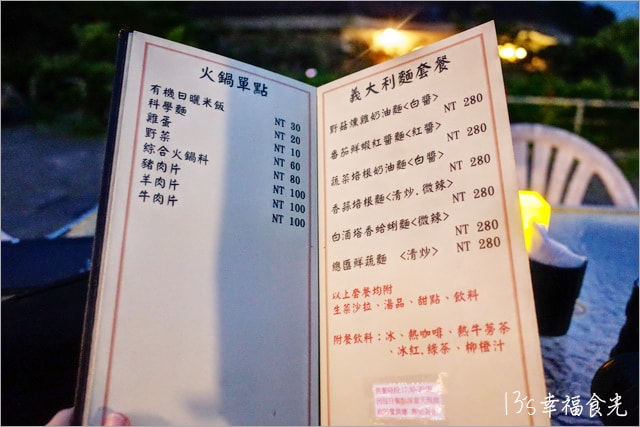 火鍋單點
有機日曬米飯 NT 30
科學麵 NT 20
雞蛋 NT 10
野菜 NT 60
綜合火鍋料 NT 80
豬肉片 NT 100
羊肉片 NT 100
牛肉片 NT 100
義大利麵套餐
野菇燻雞奶油麵<白醬> NT 280
番茄鮮蝦紅醬麵<紅醬> NT 280
蔬菜培根奶油麵<白醬> NT 280
香蒜培根麵<清炒.微辣> NT 280
白酒塔香蛤蜊麵<微辣> NT 280
總匯鮮蔬麵 <清炒> NT 280
以上套餐均附
生菜沙拉、湯品、甜點、飲料
附餐飲料：冰、熱咖啡、熱牛蒡茶
、冰紅.綠茶、柳橙汁
13's幸福食光